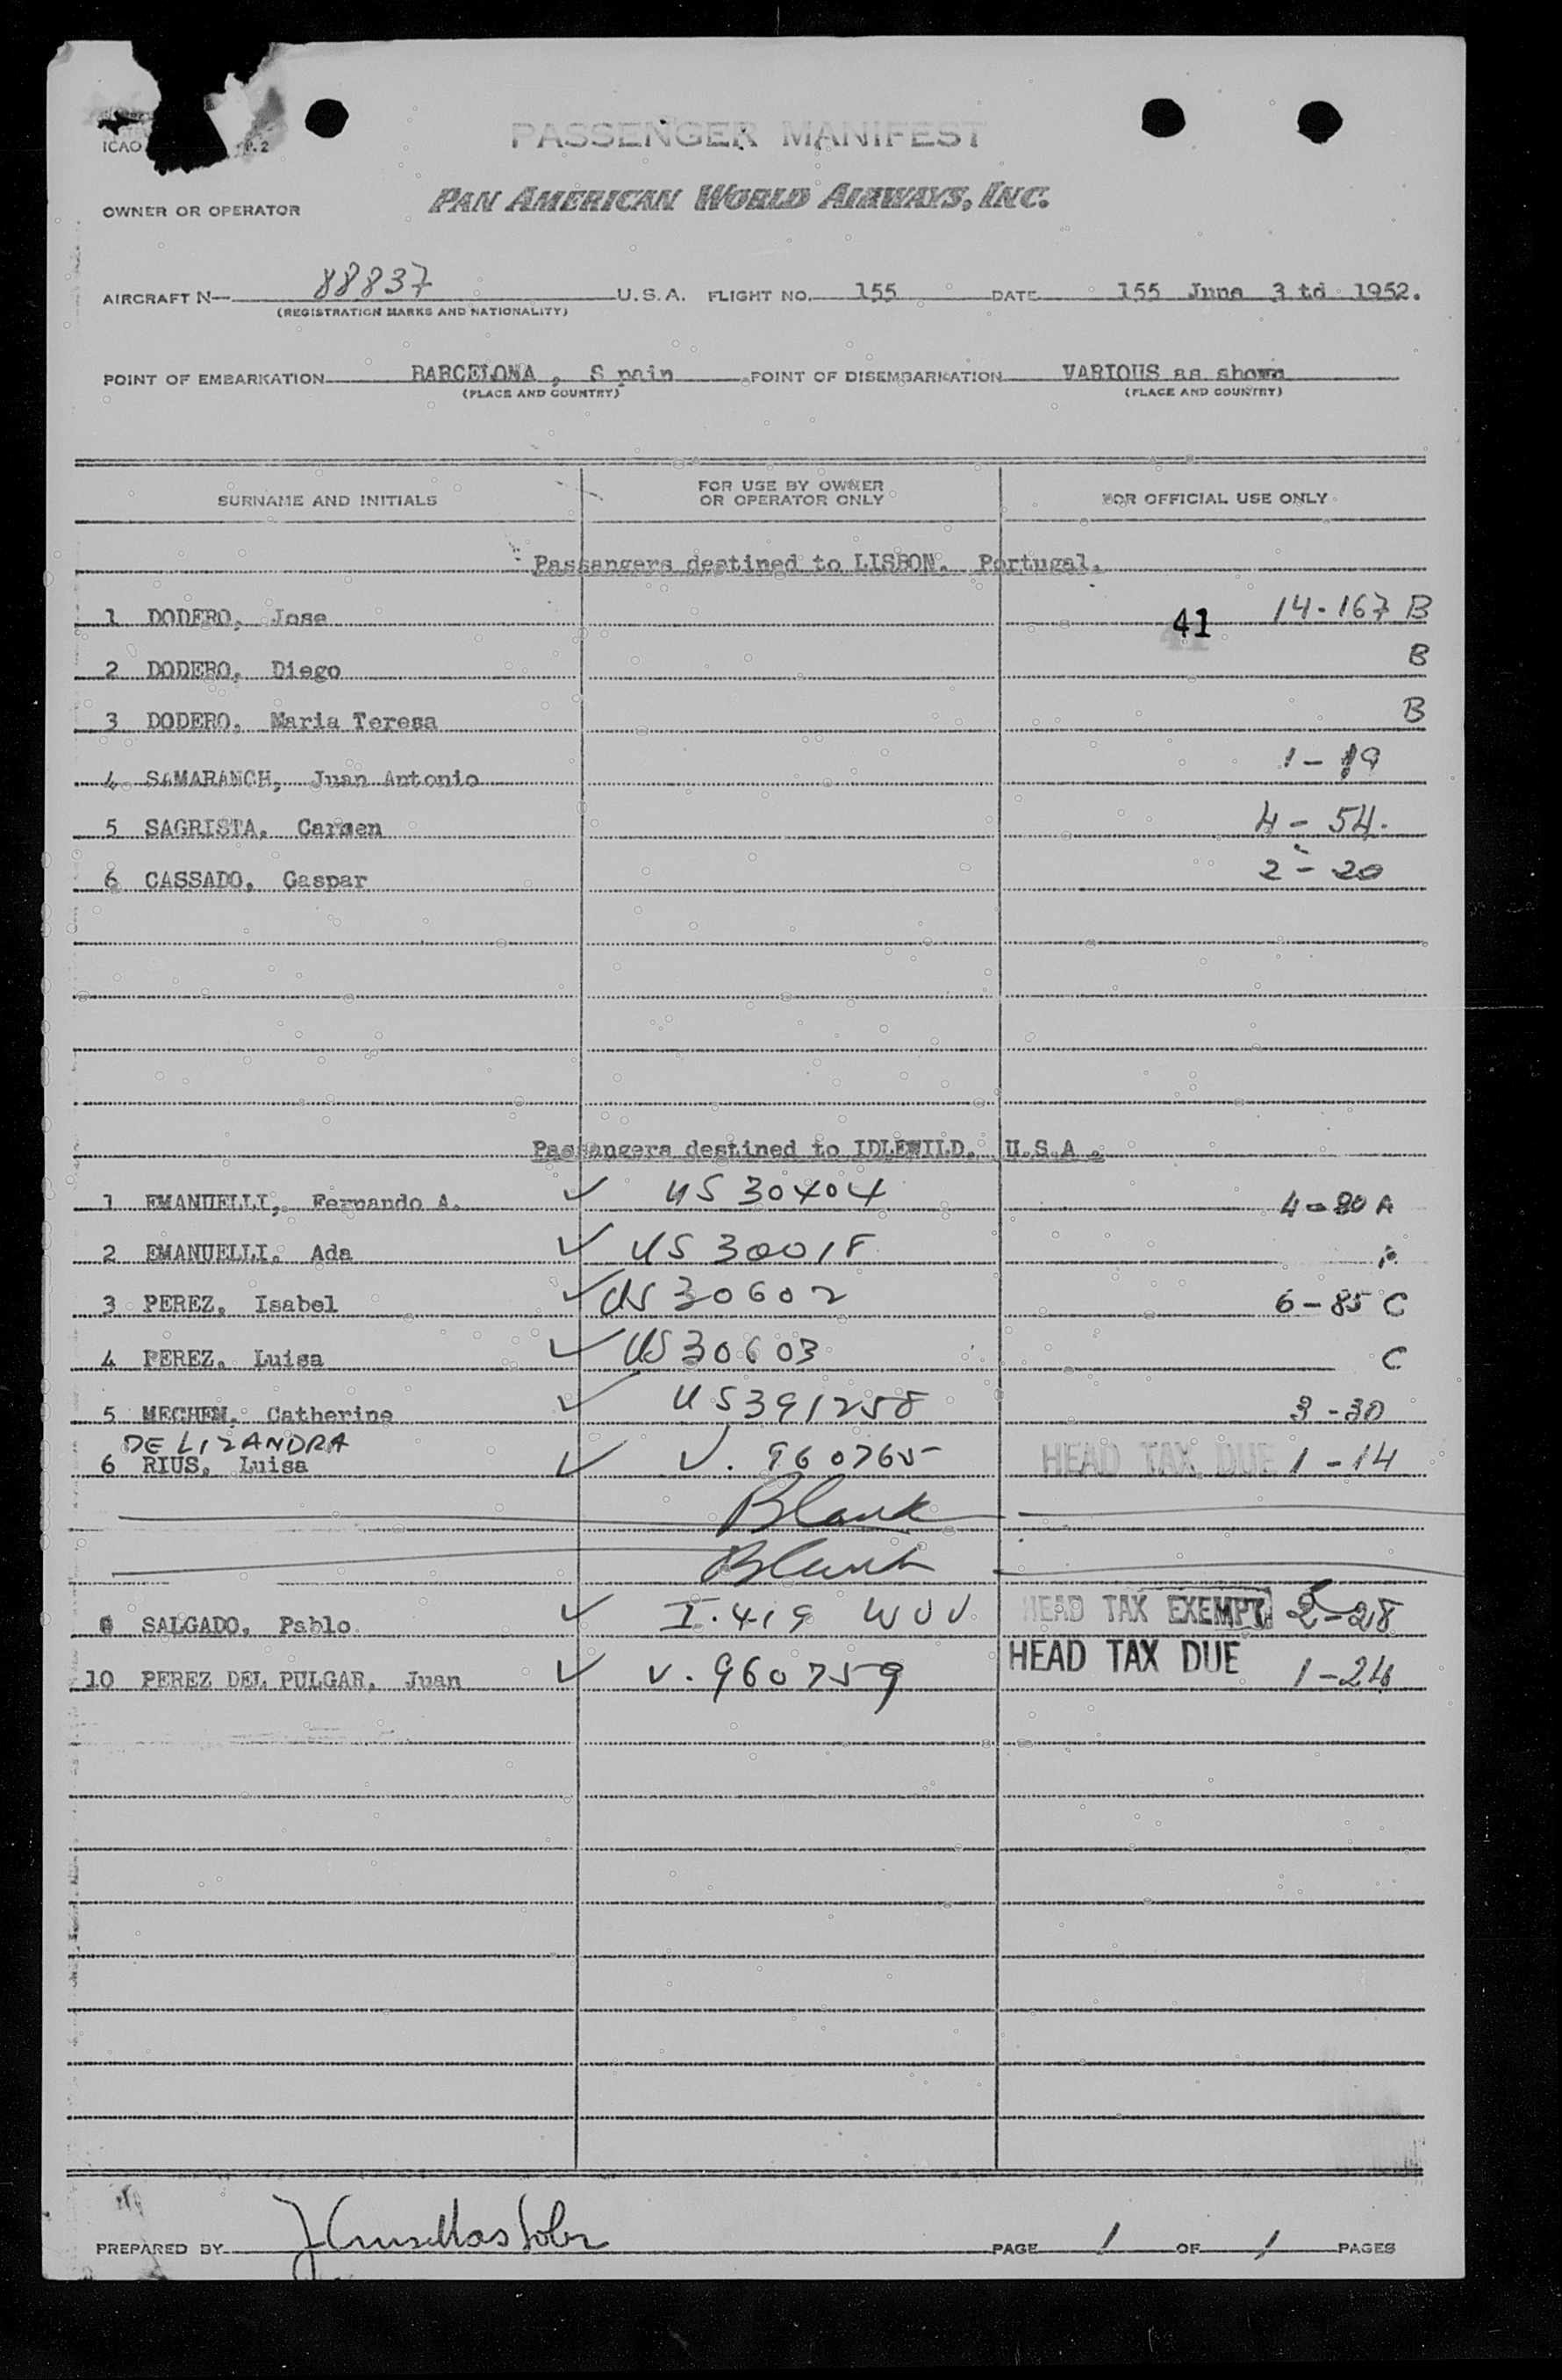 ICAO
P. 2
PASSENGER MANIFEST
OWNER OR OPERATOR PAN AMERICAN WORLD AIRWAYS, INC.
AIRCRAFT N— 88837 U.S.A. FLIGHT NO. 155 DATE 155 June 3 td 1952.
(REGISTRATION MARKS AND NATIONALITY)
POINT OF EMBARKATION BARCELONA, S pain POINT OF DISEMBARKATION VARIOUS as shown
(PLACE AND COUNTRY) (PLACE AND COUNTRY)
SURNAME AND INITIALS FOR USE BY OWNER OR OPERATOR ONLY FOR OFFICIAL USE ONLY
Passangers destined to LISBON. Portugal.
1 DODERO, Jose 41 14-167 B
2 DODERO, Diego B
3 DODERO, Maria Teresa B
4 SAMARANCH, Juan Antonio 1-19
5 SAGRISTA, Carmen 4-54.
6 CASSADO, Gaspar 2-20
Passangers destined to IDLEWILD. U.S.A.
1 EMANUELLI, Fernando A. ✓ US 30404 4-80 A
2 EMANUELLI, Ada ✓ US 30018
3 PEREZ, Isabel ✓ US 30602 6-85 C
4 PEREZ, Luisa ✓ US 30603 C
5 MECHEM, Catherine ✓ US 391258 3-30
DE LIZANDRA
6 RIUS, Luisa ✓ V. 960765 HEAD TAX DUE 1-14
Blank
Blank
SALGADO, Pablo ✓ I.419 HEAD TAX EXEMPT 2-28
10 PEREZ DEL PULGAR, Juan ✓ V. 960759 HEAD TAX DUE 1-24
PREPARED BY PAGE 1 OF 1 PAGES